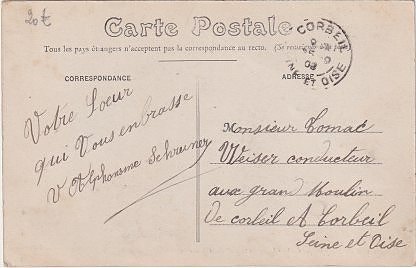 20 €
Carte Postale
Tous les pays étrangers n'acceptent pas la correspondance au recto. (Se renseigner
CORRESPONDANCE
ADRESSE
CORBEIL
ET OISE
Votre Sœur
qui Vous enbrasse
V Alphonsine Schreiner
Monsieur Comac
Weiser conducteur
aux gran Moulin
De corleil A Corbeil
Seine et Oise